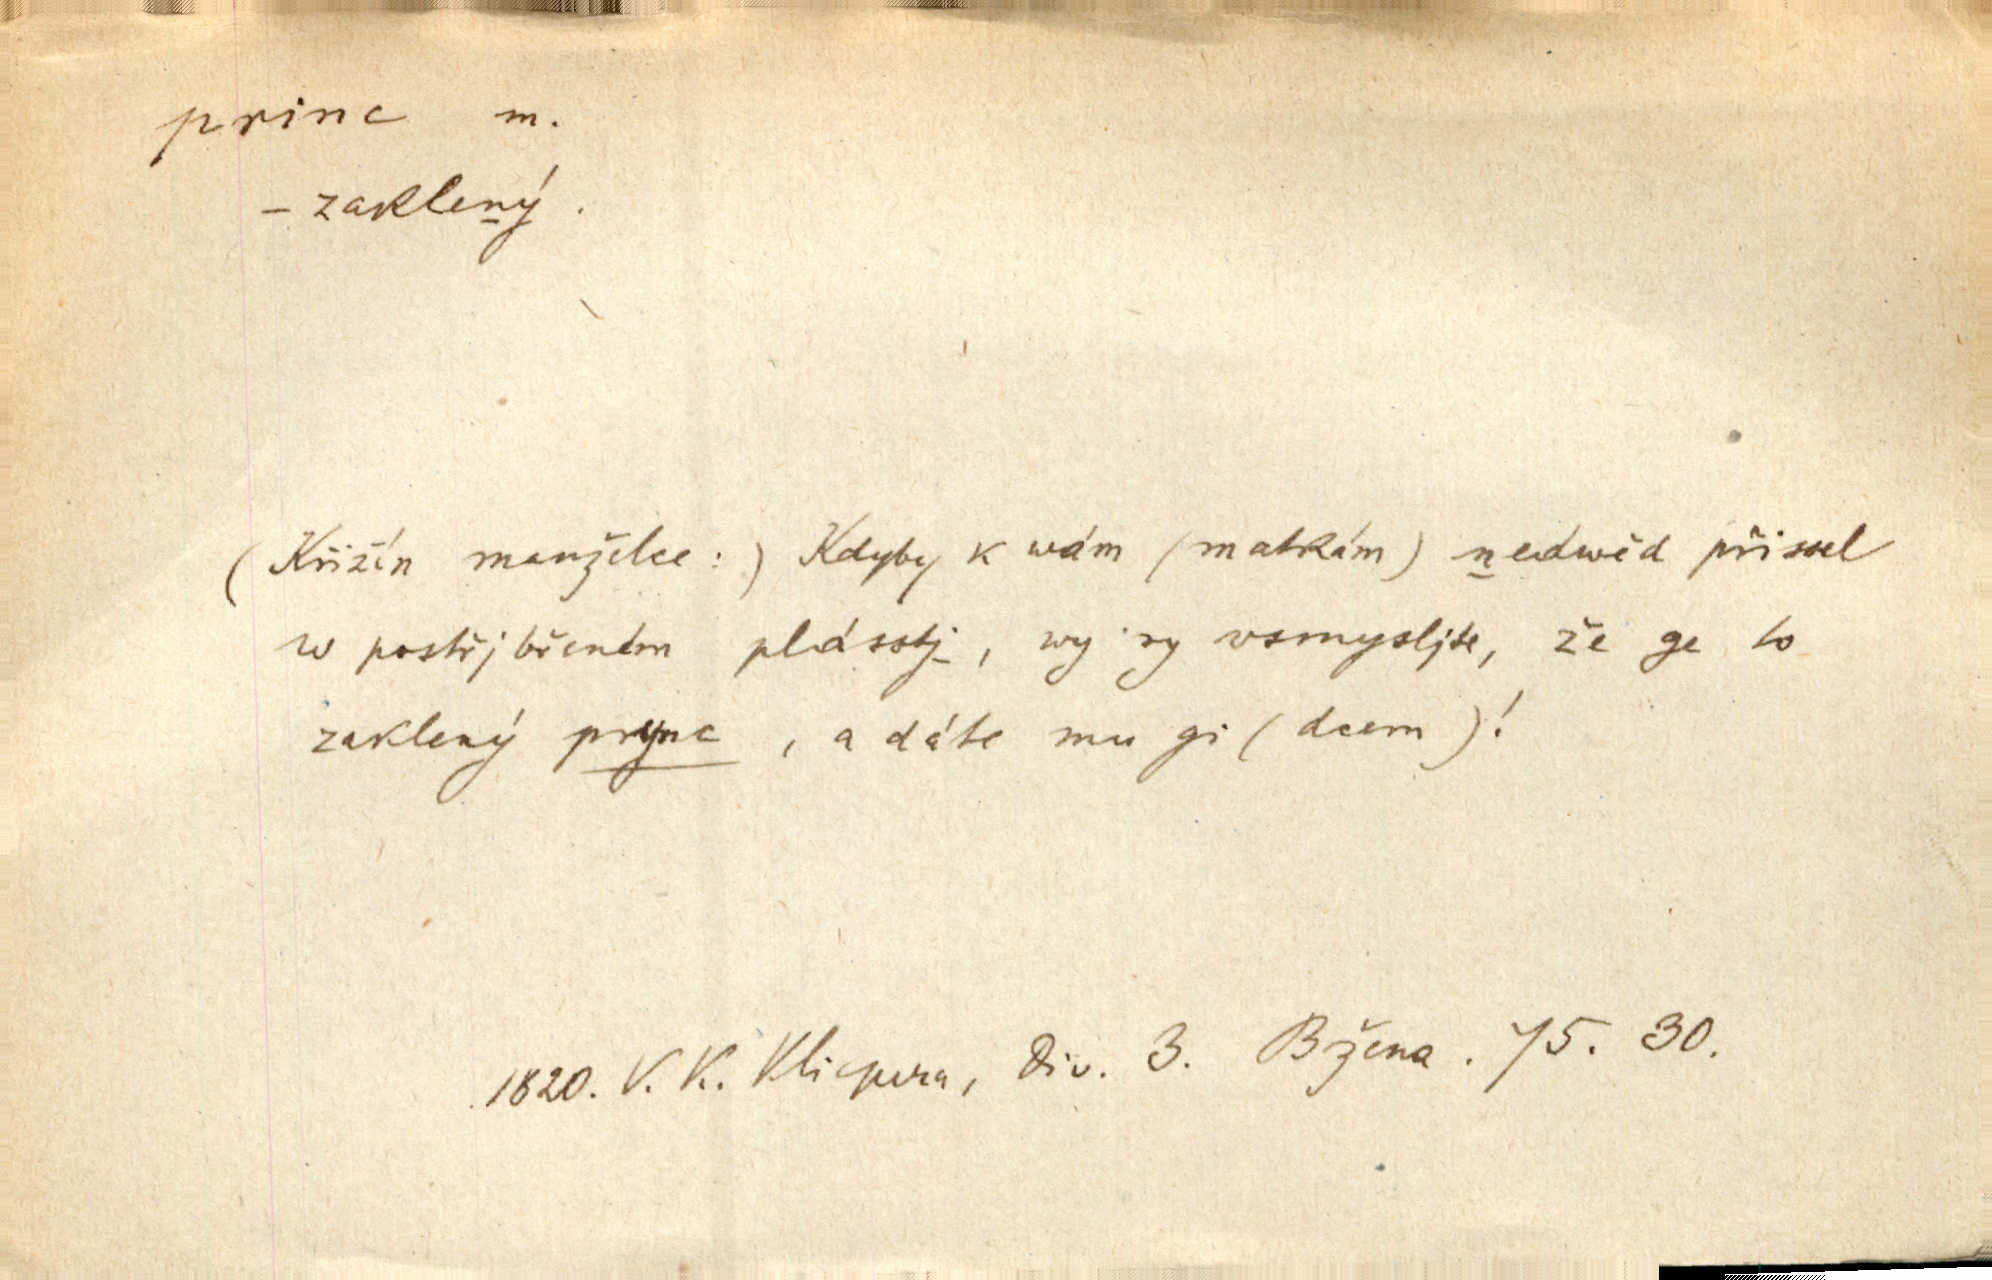 princ m.
– zaklený.
(Křižín manželce:) Kdyby k wám (matkám) nedwěd přissel
w postřjbřeném plásstj, wy sy vsmysljte, že ge to
zaklený prync, a dáte mu gi (dceru)!
1820. V. K. Klicpera, Div. 3. Bžena. 75. 30.